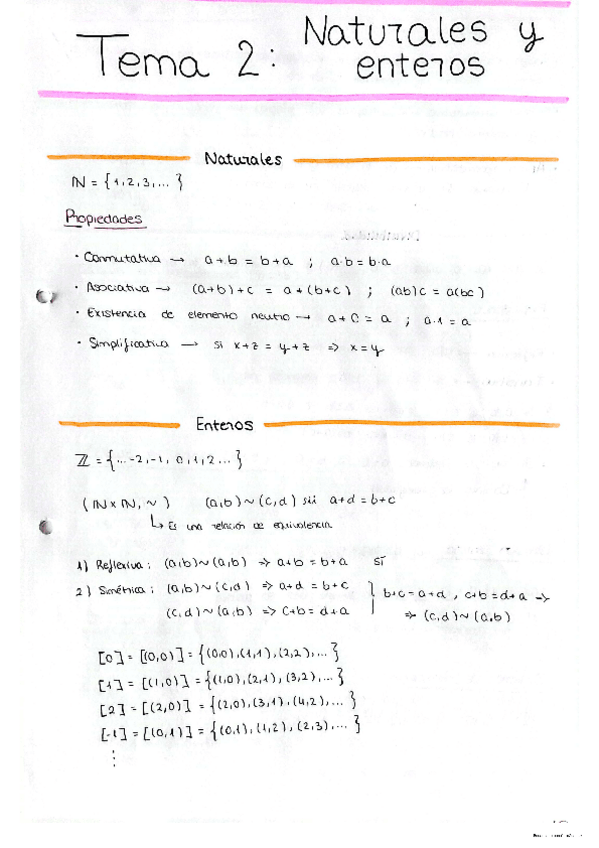 Tema 2: Naturales y
enteros
Naturales
ℕ = {1,2,3,... }
Propiedades
· Conmutativa → a+b = b+a ; a·b = b·a
· Asociativa → (a+b)+c = a+(b+c) ; (ab)c = a(bc)
· Existencia de elemento neutro → a+0 = a ; a·1 = a
· Simplificativa → si x+z = y+z ⇒ x=y
Enteros
ℤ = {...-2,-1, 0,1,2...}
(ℕ×ℕ, ~) (a,b)~(c,d) sii a+d = b+c
↳ Es una relación de equivalencia
1) Reflexiva: (a,b)~(a,b) ⇒ a+b = b+a sí
2) Simétrica: (a,b)~(c,d) ⇒ a+d = b+c } b+c=a+d, c+b=d+a ⇒
(c,d)~(a,b) ⇒ c+b = d+a ⇒ (c,d)~(a,b)
[0] = [(0,0)] = {(0,0),(1,1),(2,2),... }
[1] = [(1,0)] = {(1,0),(2,1),(3,2),... }
[2] = [(2,0)] = {(2,0),(3,1),(4,2),... }
[-1] = [(0,1)] = {(0,1),(1,2),(2,3),... }
⋮